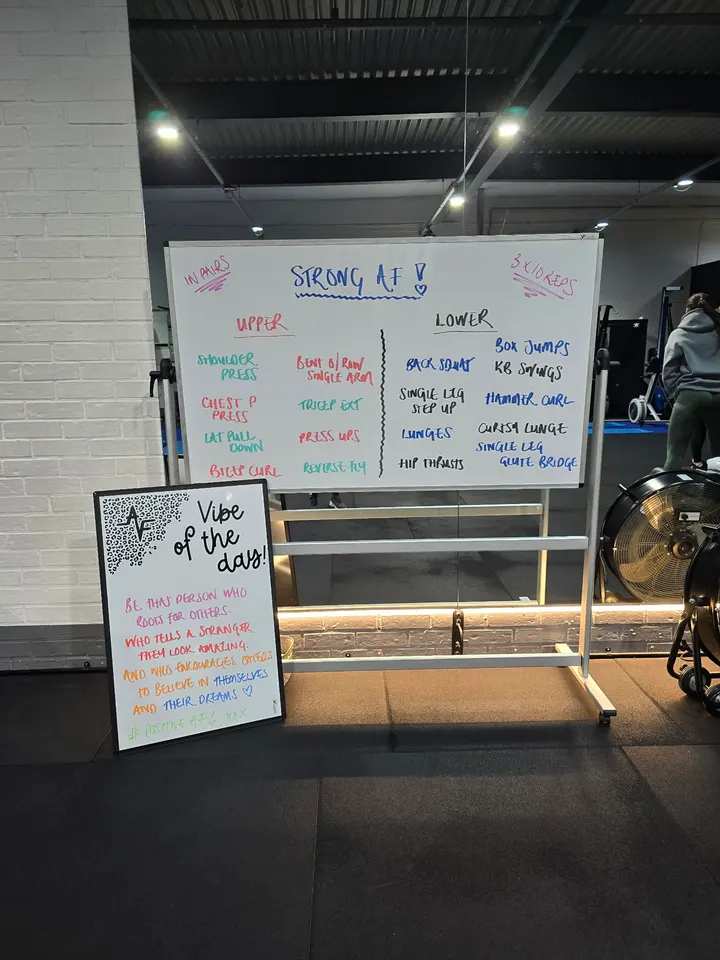 IN PAIRS
STRONG AF!
3 X 10 REPS
UPPER
SHOULDER
PRESS
CHEST P
PRESS
LAT PULL
DOWN
BICEP CURL
BENT O/RAW
SINGLE ARM
TRICEP EXT
PRESS UPS
REVERSE FLY
LOWER
BACK SQUAT
SINGLE LEG
STEP UP
LUNGES
HIP THRUSTS
BOX JUMPS
KB SWINGS
HAMMER CURL
CURTSY LUNGE
SINGLE LEG
GLUTE BRIDGE
AF
Vibe
of the
day!
BE THAT PERSON WHO
ROOTS FOR OTHERS.
WHO TELLS A STRANGER
THEY LOOK AMAZING.
AND WHO ENCOURAGES OTHERS
TO BELIEVE IN THEMSELVES
AND THEIR DREAMS ♡
# POSITIVE AF! XXX